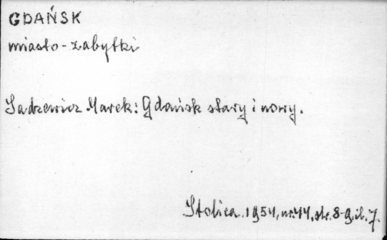 GDAŃSK
miasto-zabytki
Sadzewicz Marek: Gdańsk stary i nowy.
Stolica. 1954, nr. 44, str. 8-9, il. 7.